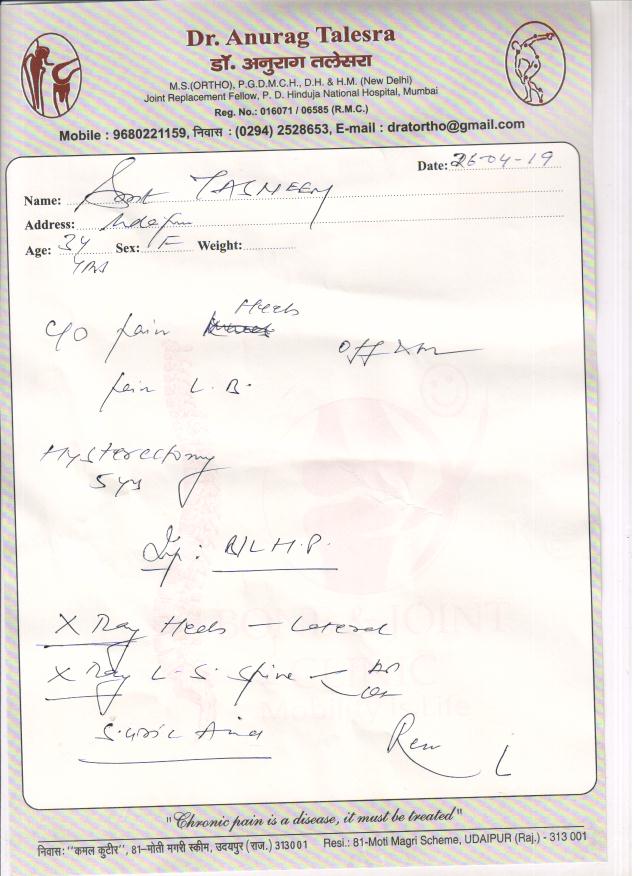 Dr. Anurag Talesra
डॉ. अनुराग तलेसरा
M.S.(ORTHO), P.G.D.M.C.H., D.H. & H.M. (New Delhi)
Joint Replacement Fellow, P. D. Hinduja National Hospital, Mumbai
Reg. No.: 016071 / 06585 (R.M.C.)
Mobile : 9680221159, निवास : (0294) 2528653, E-mail : dratortho@gmail.com
Date: 26-04-19
Name: TASNEEM
Address: Udaipur
Age: 34 Sex: F Weight:
yrs
Heels
C/O pain
Off & on
pain L.B.
Hysterectomy
5 yrs
Imp: B/L H.P.
X Ray Heels - Lateral
X Ray L-S. Spine AP
Lat
S. Uric Acid
Rew
BONE & JOINT
CLINIC
Mobility is Life
"Chronic pain is a disease, it must be treated"
निवास: "कमल कुटीर", 81-मोती मगरी स्कीम, उदयपुर (राज.) 313001 Resi.: 81-Moti Magri Scheme, UDAIPUR (Raj.) - 313 001